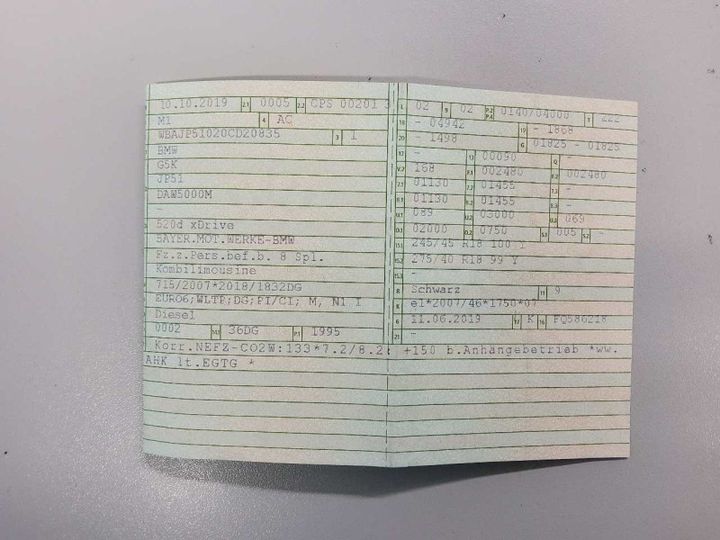 10.10.2019 2.1 0005 2.2 CPS 00201 3
M1 4 AC
WBAJP51020CD20835 3 1
BMW
G5K
JP51
DAW5000M
-
520d xDrive
BAYER.MOT.WERKE-BMW
Fz.z.Pers.bef.b. 8 Spl.
Kombilimousine
715/2007*2018/1832DG
EURO6;WLTP;DG;PI/CI; M, N1 I
Diesel
0002 14.1 36DG P.1 1995
L 02 9 02 P.2 P.4 0140/04000 T 222
18 - 04942 19 - 1868
20 - 1498 G 01825 - 01825
12 - 13 00090 Q
V.7 168 F.1 002480 F.2 002480
7.1 01130 7.2 01455 7.3 -
8.1 01130 8.2 01455 8.3 -
U.1 089 U.2 03000 U.3 069
O.1 02000 O.2 0750 S.1 005 S.2 -
15.1 245/45 R18 100 Y
15.2 275/40 R18 99 Y
15.3 -
R Schwarz 11 9
K e1*2007/46*1750*07
6 11.06.2019 17 K 16 FQ586218
21 -
Korr.NEFZ-CO2W:133*7.2/8.2: +150 b.Anhängebetrieb *ww.
AHK lt.EGTG *